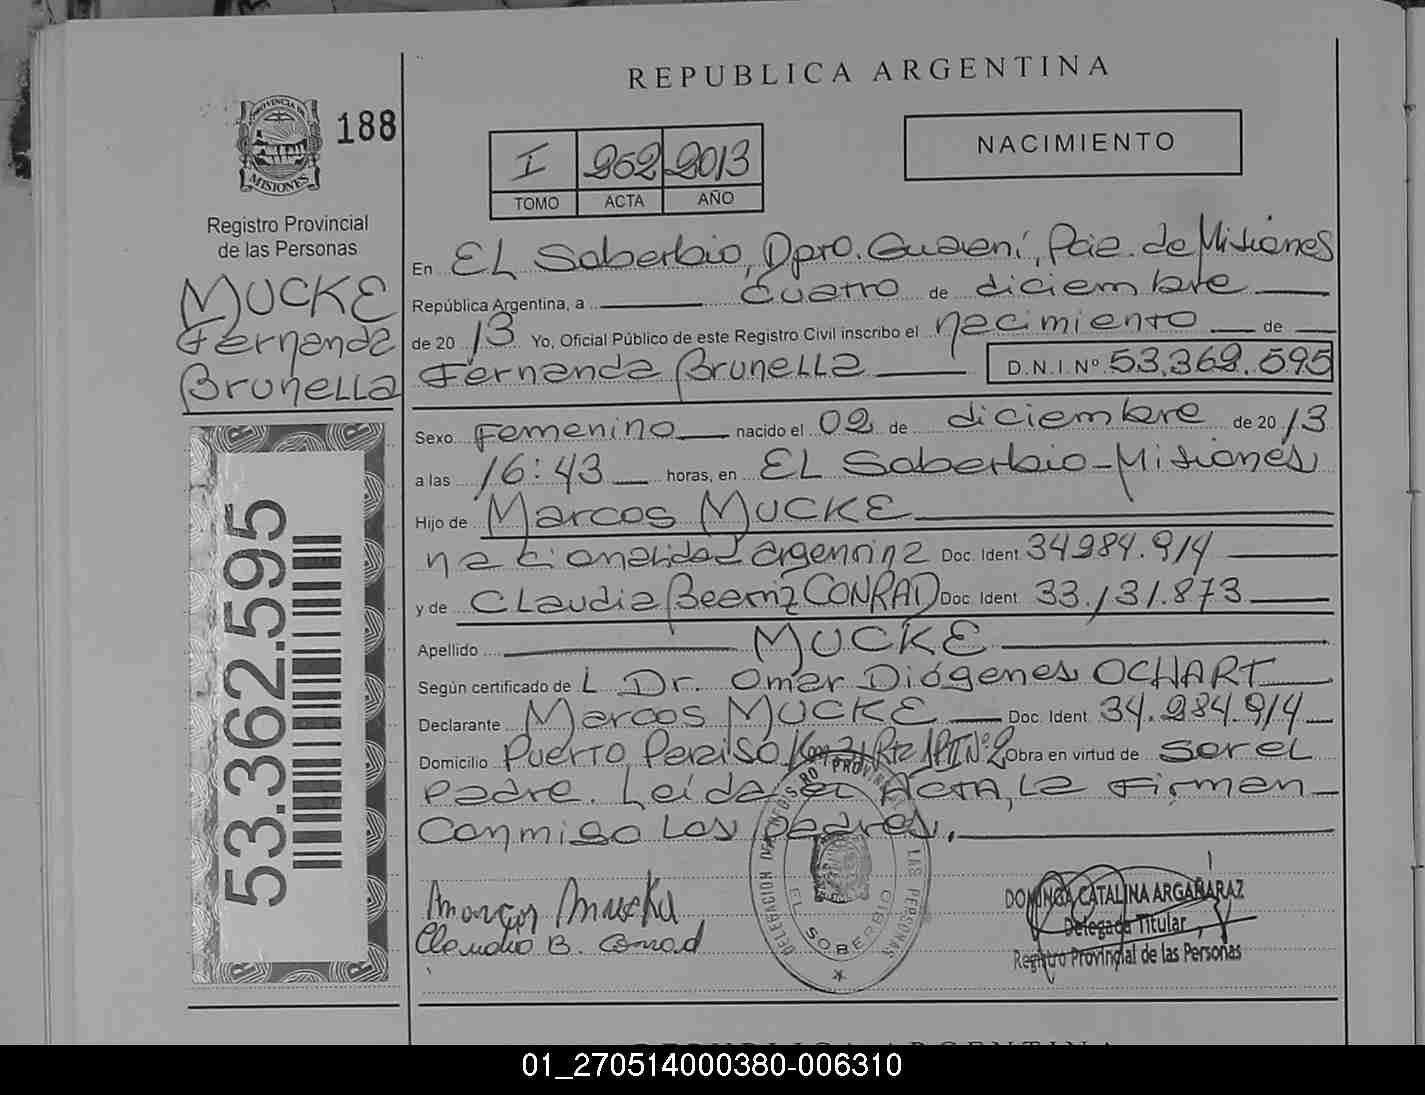 REPUBLICA ARGENTINA
PROVINCIA DE
MISIONES
188
Registro Provincial
de las Personas
I 262 2013
TOMO ACTA AÑO
NACIMIENTO
MUCKE
Fernanda
Brunella
53.362.595
En El Soberbio, Dpto. Guaraní, Pcia. de Misiones
República Argentina, a cuatro de diciembre
de 2013 Yo, Oficial Público de este Registro Civil inscribo el nacimiento de
Fernanda Brunella D.N.I. Nº 53.362.595
Sexo Femenino nacido el 02 de diciembre de 2013
a las 16:43 horas, en El Soberbio-Misiones
Hijo de Marcos MUCKE
nacionalidad argentina Doc. Ident. 34984.914
y de Claudia Beatriz CONRAD Doc. Ident. 33.131.873
Apellido MUCKE
Según certificado de L Dr. Omar Diógenes OCHART
Declarante Marcos MUCKE Doc. Ident. 34.984.914
Domicilio Puerto Paraíso Nº2 Obra en virtud de ser el
padre. Leída el Acta, la firman
conmigo los padres.
Marcos Mucke
Claudia B. Conrad
DELEGACION DE LAS PERSONAS
EL SOBERBIO
DOMINGA CATALINA ARGAÑARAZ
Delegada Titular
Registro Provincial de las Personas
REPUBLICA ARGENTINA
01_270514000380-006310